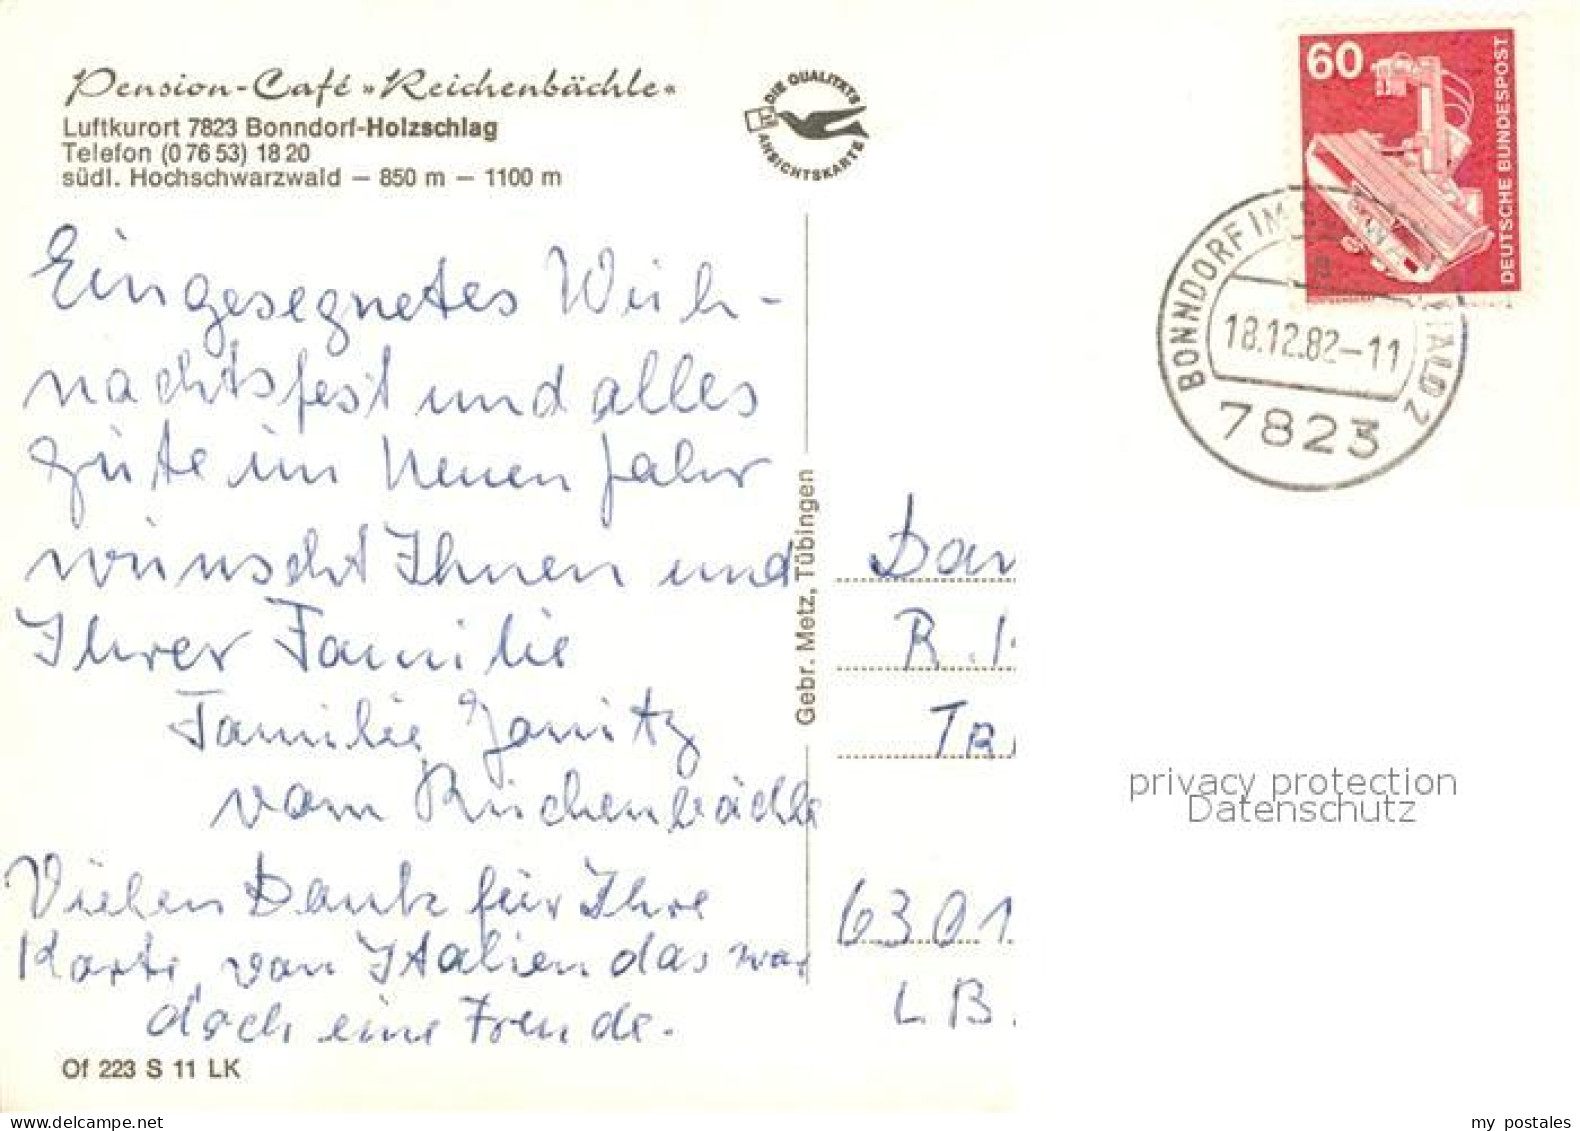 Pension-Café »Reichenbächle«
Luftkurort 7823 Bonndorf-Holzschlag
Telefon (0 76 53) 18 20
südl. Hochschwarzwald — 850 m — 1100 m
DIE QUALITÄTS
ANSICHTSKARTE
60
DEUTSCHE BUNDESPOST
BONNDORF IM
WALD 2
18.12.82-11
7823
Ein gesegnetes Weih-
nachtsfest und alles
gute im Neuen Jahr
wünscht Ihnen und
Ihrer Familie
Familie Janitz
vom Reichenbächle
Vielen Dank für Ihre
Karte von Italien das war
doch eine Freude.
Of 223 S 11 LK
Gebr. Metz, Tübingen
R.
6301
LB.
privacy protection
Datenschutz
my postales